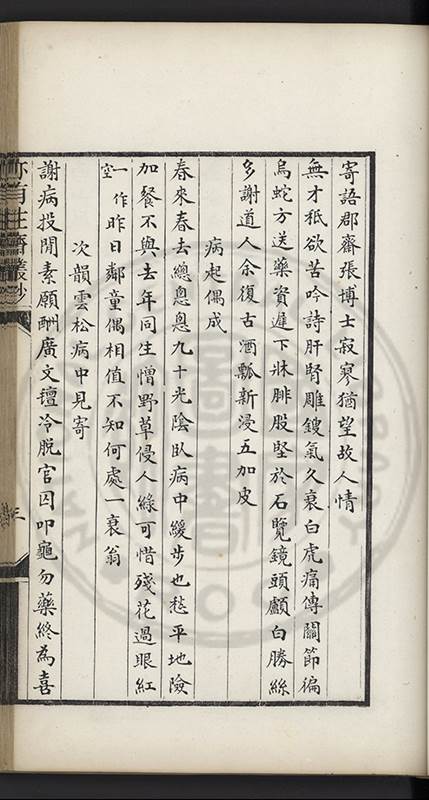 寄語郡齋張博士寂寥猶望故人情
無才秖欲苦吟詩肝腎雕鎪氣久衰白虎痛傳關節徧
烏蛇方送藥資遲下牀腓股堅於石覽鏡頭顱白勝絲
多謝道人余復古酒瓢新浸五加皮
病起偶成
春來春去總悤悤九十光陰臥病中緩步也愁平地險
加餐不與去年同生憎野草侵人綠可惜殘花過眼紅
一作空昨日鄰童偶相值不知何處一衰翁
次韻雲松病中見寄
謝病投閒素願酬廣文氊冷脫官囚叩龜勿藥終為喜
亦有生齋叢鈔